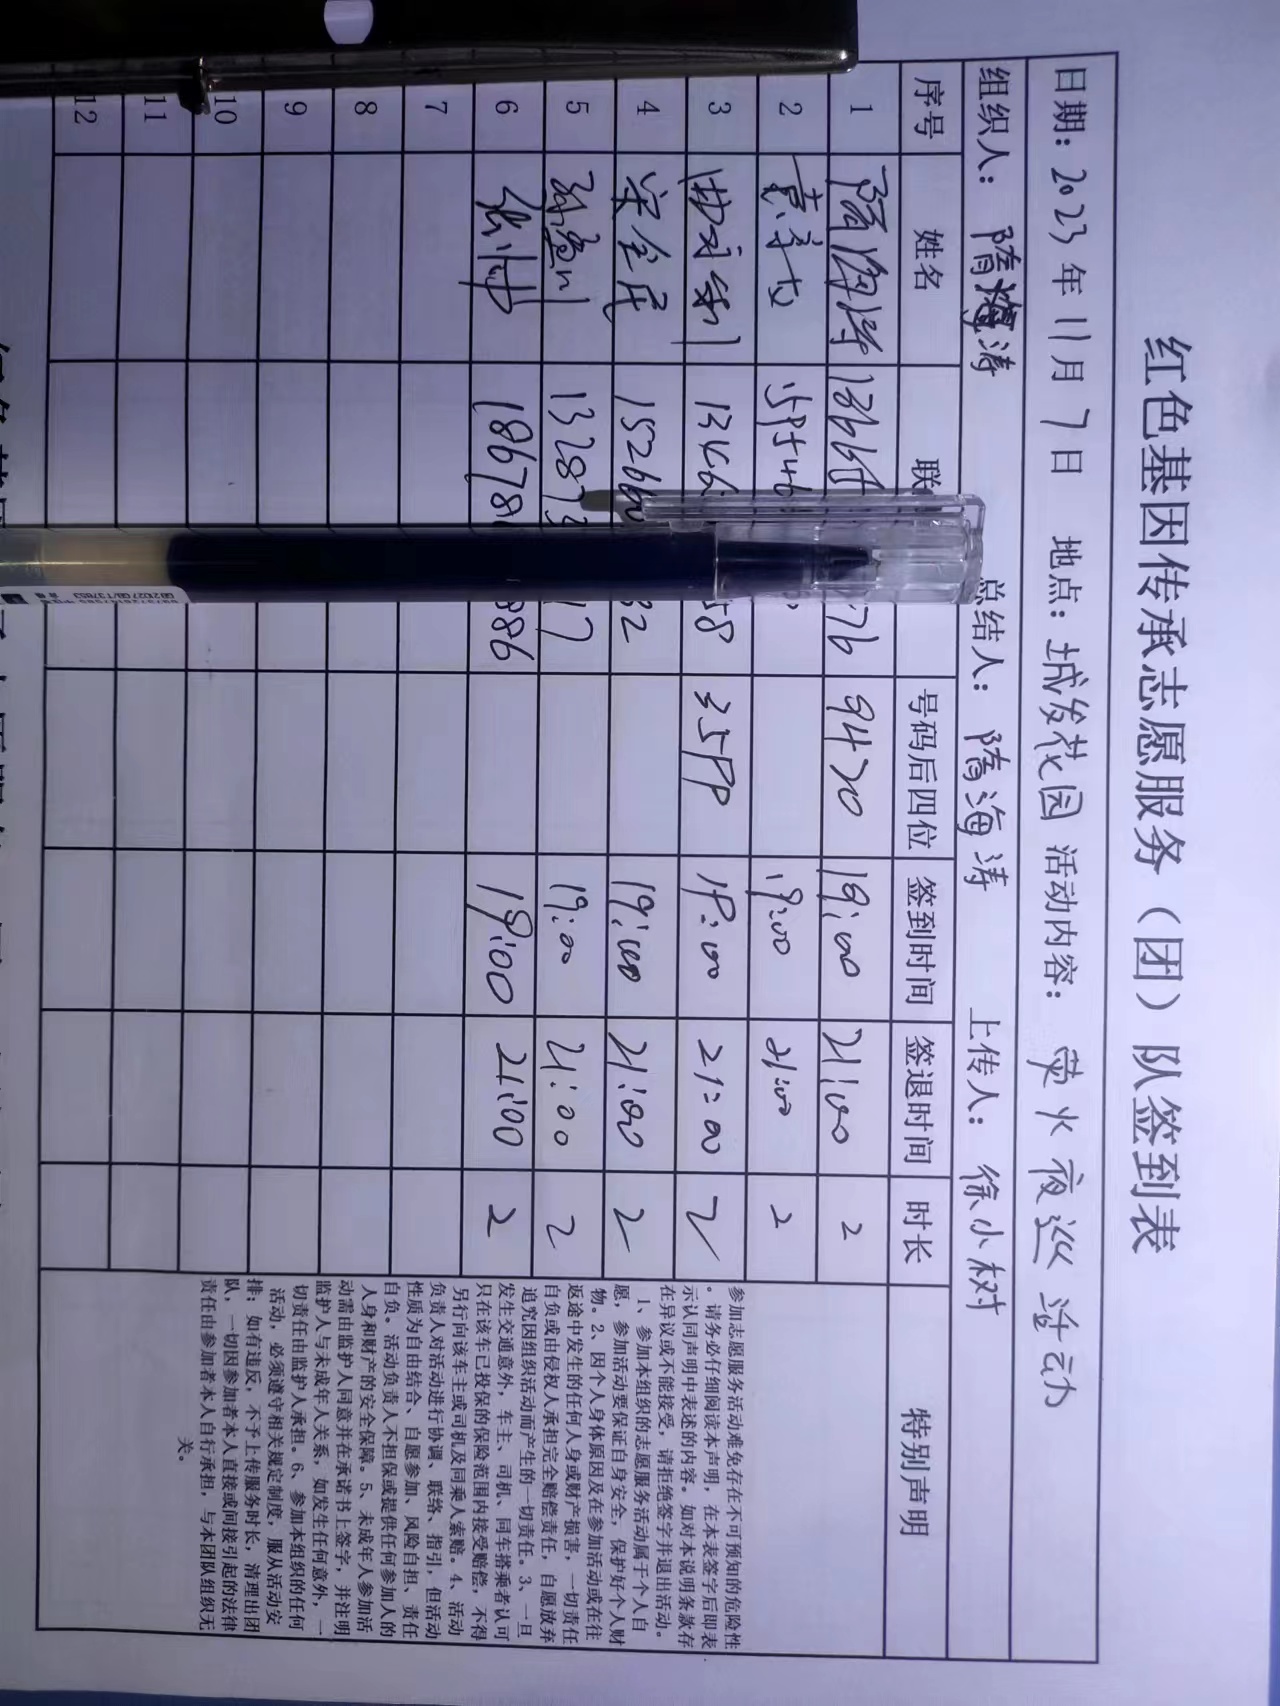 红色基因传承志愿服务（团）队签到表
日期：2023年11月7日 地点：城发花园 活动内容：荧火夜巡活动
组织人：隋海涛 总结人：隋海涛 上传人：徐小树
序号 姓名 联 号码后四位 签到时间 签退时间 时长 特别声明
1 隋海涛 76 9470 19:00 21:00 2
2 19:00 21:00 2
3 1346 58 3599 19:00 21:00 2
4 152660 32 19:00 21:00 2
5 13287 17 19:00 21:00 2
6 18678 886 19:00 21:00 2
7
8
9
10
11
12
参加志愿服务活动难免存在不可预知的危险性
。请务必仔细阅读本声明，在本表签字后即表
示认同声明中表述的内容。如对本说明条款存
在异议或不能接受，请拒绝签字并退出活动。
1、参加本组织的志愿服务活动属于个人自
愿，参加活动要保证自身安全，保护好个人财
物。2、因个人身体原因及在参加活动或在往
返途中发生的任何人身或财产损害，一切责任
自负或由侵权人承担完全赔偿责任，自愿放弃
追究因组织活动而产生的一切责任。3、一旦
发生交通意外，车主、司机、同车搭乘者认可
只在该车已投保的保险范围内接受赔偿，不得
另行向该车主或司机及同乘人索赔。4、活动
负责人对活动进行协调、联络、指引，但活动
性质为自由结合、自愿参加、风险自担、责任
自负。活动负责人不担保或提供任何参加人的
人身和财产的安全保障。5、未成年人参加活
动需由监护人同意并在承诺书上签字，并注明
监护人与未成年人关系，如发生任何意外，一
切责任由监护人承担。6、参加本组织的任何
活动，必须遵守相关规定制度，服从活动安
排；如有违反，不予上传服务时长，清理出团
队，一切因参加者本人直接或间接引起的法律
责任由参加者本人自行承担，与本团队组织无
关。